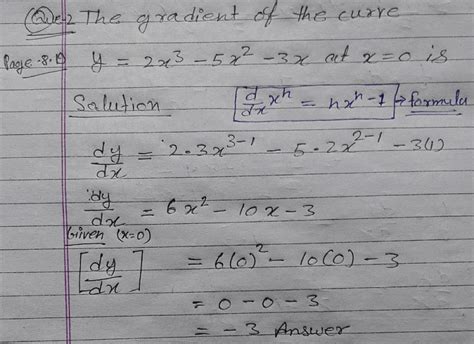 Q.2 The gradient of the curve
Page-8.10 y = 2x³ - 5x² - 3x at x=0 is
Solution [d/dx xⁿ = nxⁿ⁻¹] → formula
dy/dx = 2·3x³⁻¹ - 5·2x²⁻¹ - 3(1)
dy/dx = 6x² - 10x - 3
Given (x=0)
[dy/dx] = 6(0)² - 10(0) - 3
= 0 - 0 - 3
= -3 Answer